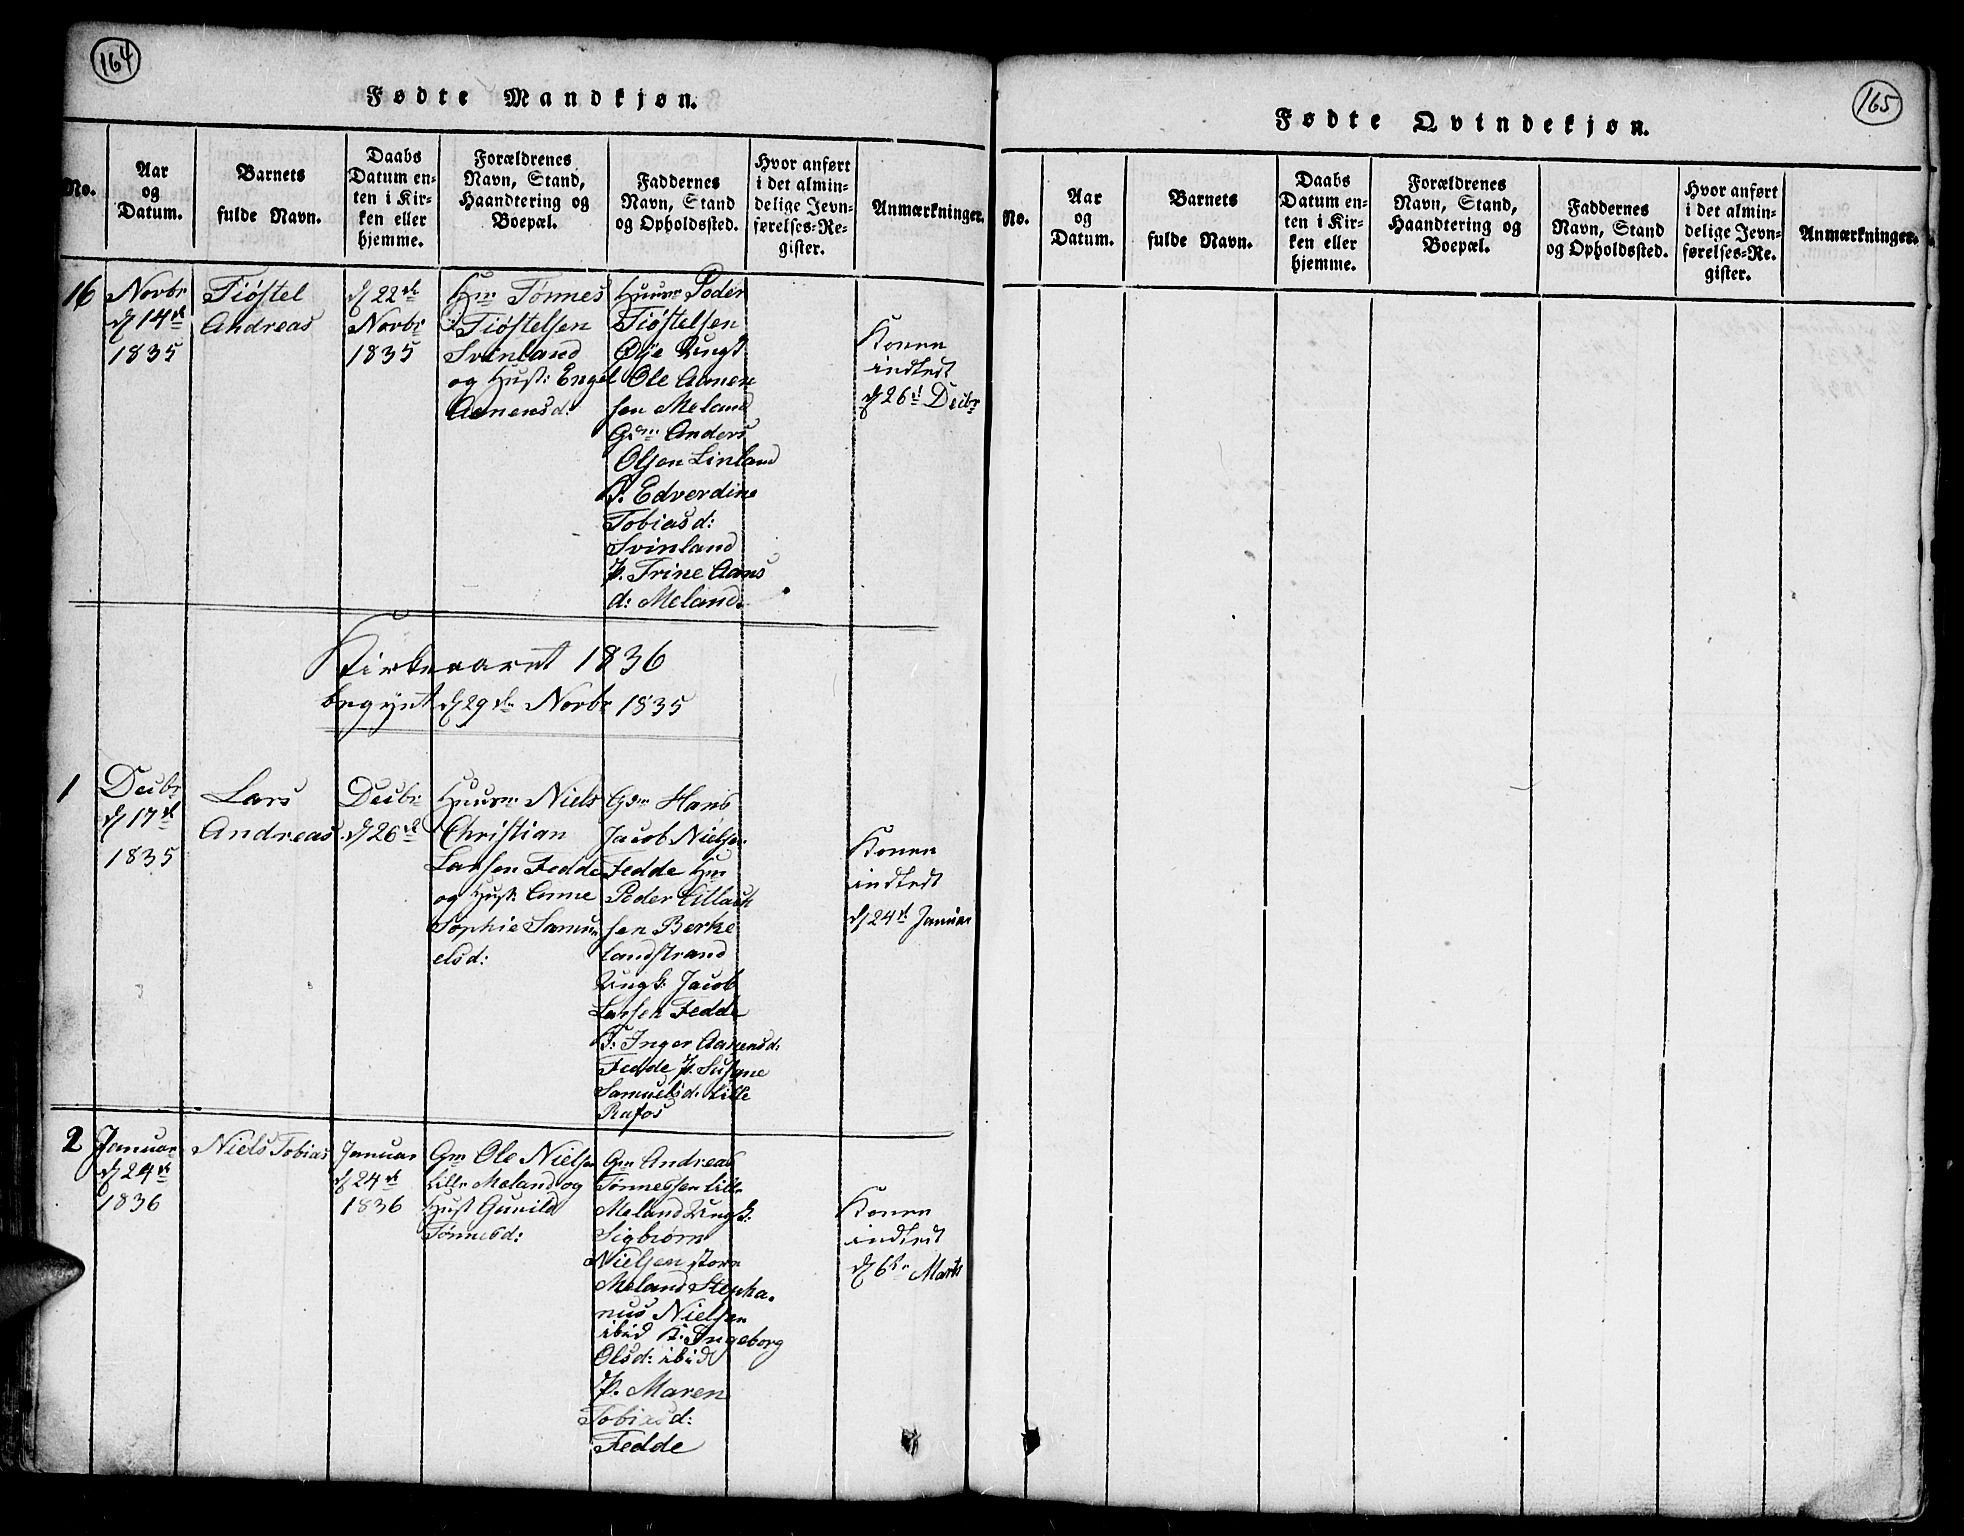 164
Fødte Mandkjøn.
No.
Aar
og
Datum.
Barnets
fulde Navn.
Daabs
Datum en-
ten i Kir-
ken eller
hjemme.
Forældrenes
Navn, Stand,
Haandtering og
Boepæl.
Faddernes
Navn, Stand
og Opholdssted.
Hvor anført
i det almin-
delige Jevn-
førelses-Re-
gister.
Anmærkninger.
16
Novbr
d 14de
1835
Tiøstel
Andreas
d 22de
Novbr
1835
Hm Tønnes
Tiøstelsen
Svinland
og Hust: Engel
Aanensd:
Huusm Peder
Tiøstelsen
Øije Ungk
Ole Aanen
sen Meland
Gm Anders
Olsen Linland
K. Edverdine
Tobiasd:
Svinland
P. Trine Aans
d: Meland
Konen
indledt
d 26d Decbr
Kirkeaaret 1836
begynt d 29de Novbr 1835
1
Decbr
d 17de
1835
Lars
Andreas
Decbr
d 26de
Huusm Niels
Christian
Larsen Fedde
og Hust: Anne
Sophie Samu
elsd:
Gdm Hans
Jacob Nielsen
Fedde Hm
Peder
sen Berke
landstrand
Ungk: Jacob
Larsen Fedde
K: Inger Aanensd:
Fedde P. Susane
Samuelsd: Lille
Rafos
Konen
indledt
d 24de Januar
2
Januar
d 24de
1836
Niels Tobias
Januar
d 24de
1836
Gm Ole Nielsen
Lille Meland og
Hust Gunild
Tønnesd:
Gm Andreas
Tønnessen Lille
Meland Ungk:
Sigbiørn
Nielsen store
Meland Stepha-
nus Nielsen
ibid K: Ingeborg
Olsd: ibid
P. Maren
Tobiasd:
Fedde
Konen
indledt
d 6te Marts
165
Fødte Qvindekjøn.
No.
Aar
og
Datum.
Barnets
fulde Navn.
Daabs
Datum en-
ten i Kir-
ken eller
hjemme.
Forældrenes
Navn, Stand,
Haandtering og
Boepæl.
Faddernes
Navn, Stand
og Opholdssted.
Hvor anført
i det almin-
delige Jevn-
førelses-Re-
gister.
Anmærkninger.